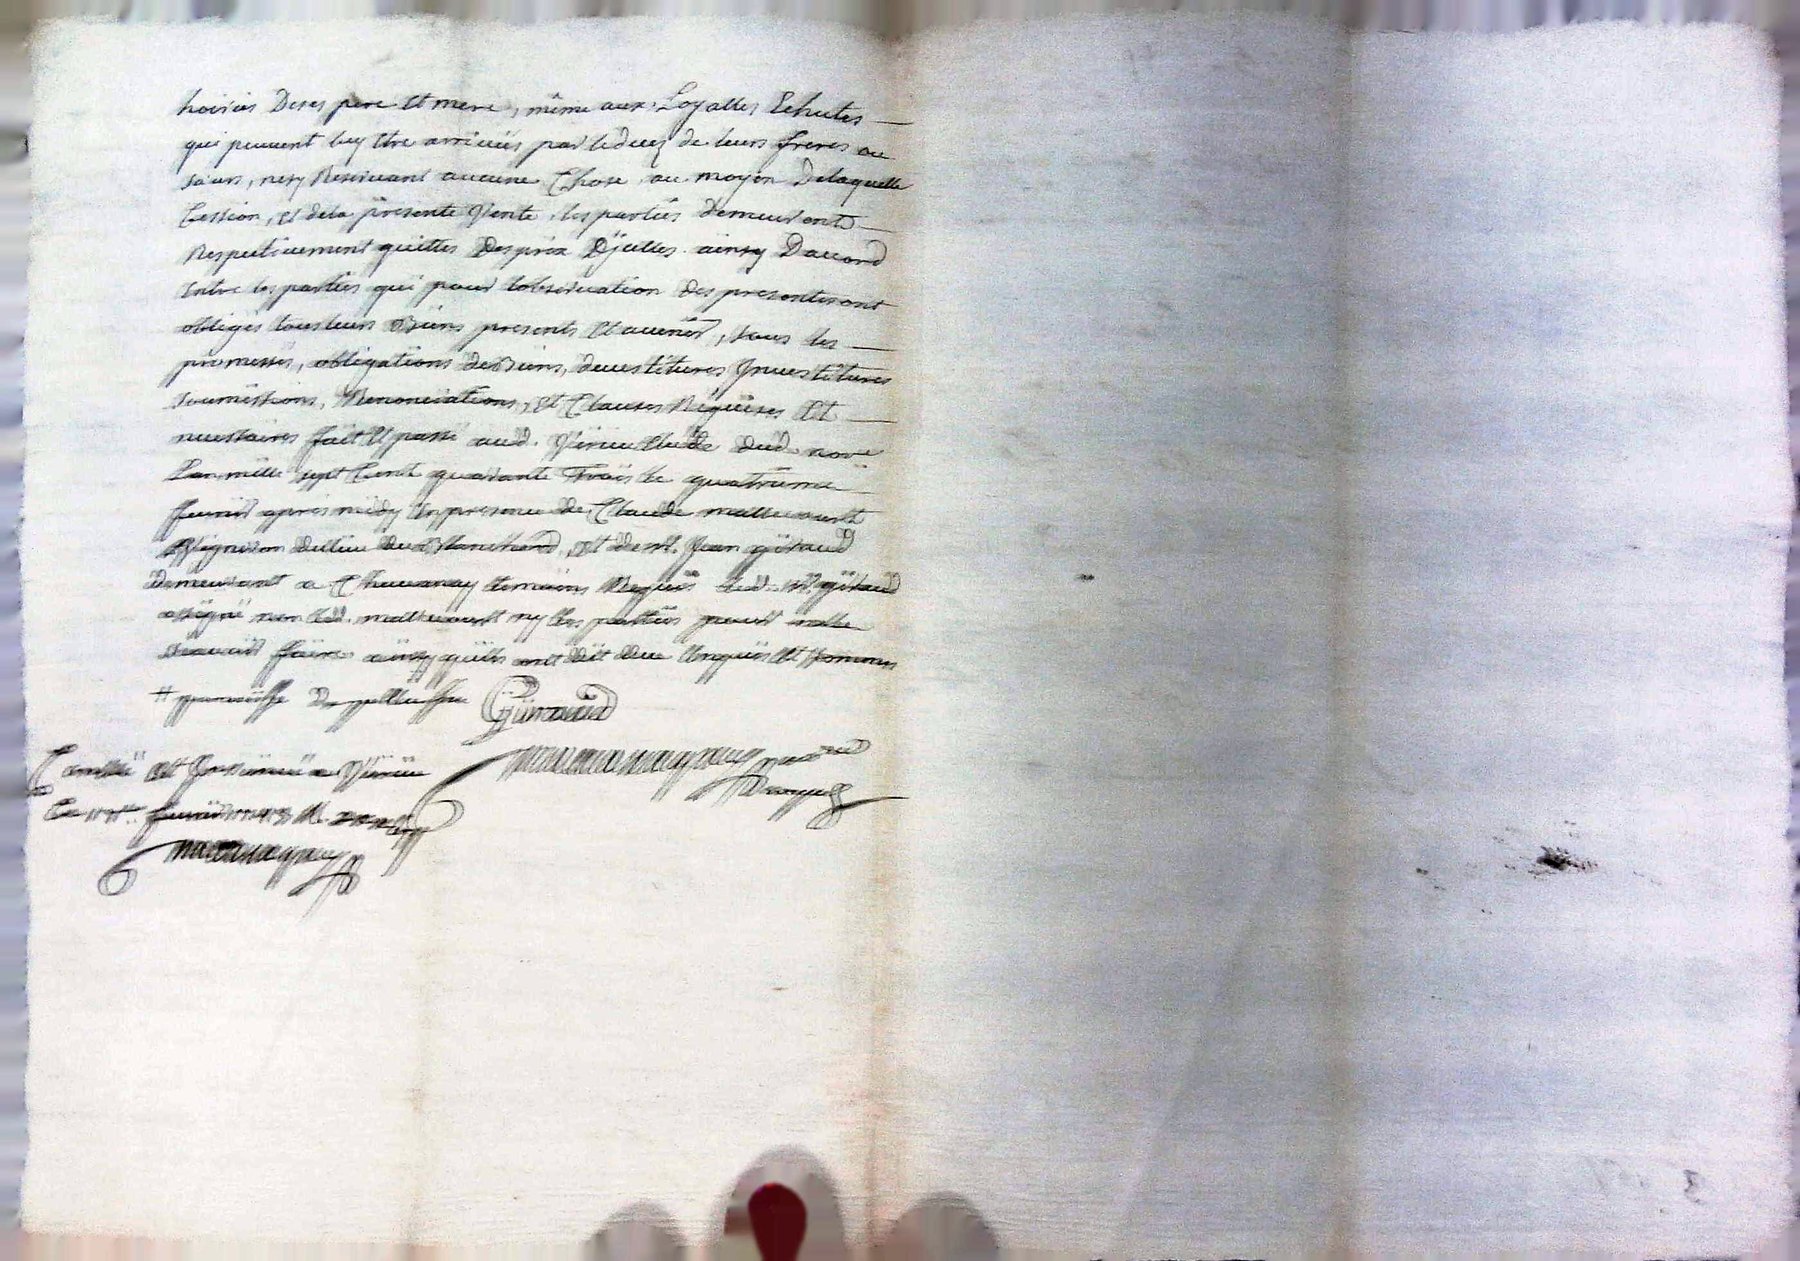 hoiries Deses pere Et mere, même aux Loyalles Echutes
qui peuvent luy Etre arrivéés par le decez de leurs freres ou
sœurs, nesy Reservant aucune Chose, au moyen Delaquelle
Cession, et dela presente Vente, les parties demeuront
Respectivement quittes Des prix D'jcelles ainsy Daccord
Entre les parties qui pour lobservation des presentes ont
obligés tous leurs Biens presents Et avenir, sous les
promesses, obligations de Biens, devestitures Jnvestitures
soumissions, Renonciations, et Clauses Requises Et
necessaires fait Et passé aud. Virieu Etude dud. nore
Lan mille sept Cent quarante Trois le quatrieme
fevrier apres midy En presence de Claude
Vigneron et de sr. Jean Giraud
demeurant a temoins Requis led. sr. Giraud
a signé non led. ny les parties pour ne le
sçavoir faire ainsy quils ont dit de ce Enquis Et sommés
# parroisse De Giraud
Controllé Et Jnsinué a Virieu
Le fevrier 1743 R.